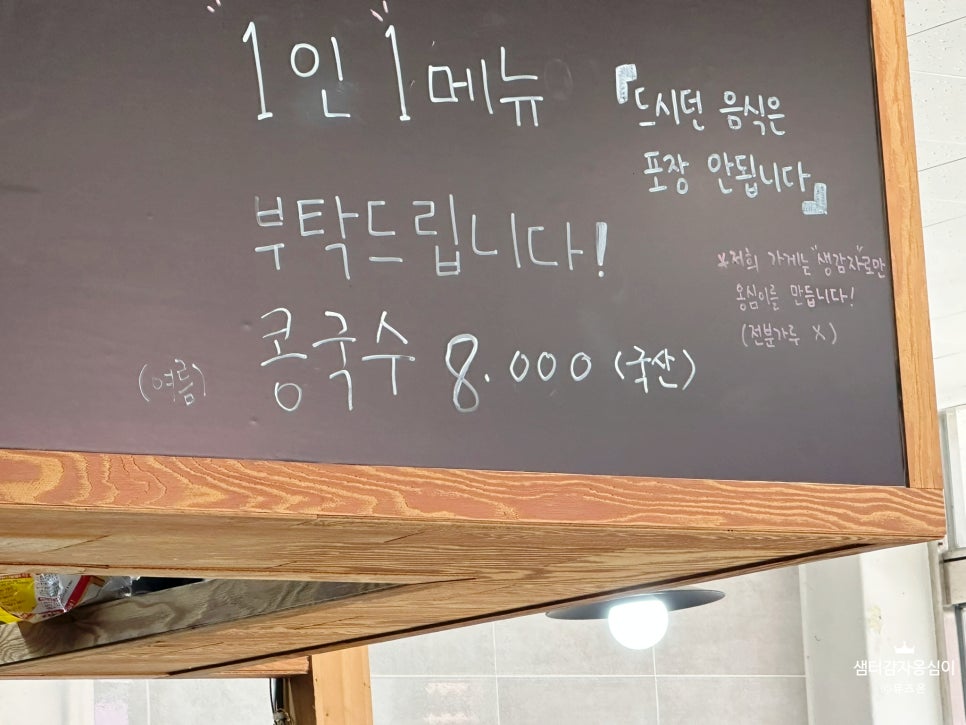 1인 1메뉴
부탁드립니다!
『드시던 음식은
포장 안됩니다』
*저희 가게는 "생감자"로만
옹심이를 만듭니다!
(전분가루 X)
(여름) 콩국수 8.000 (국산)
샘터감자옹심이